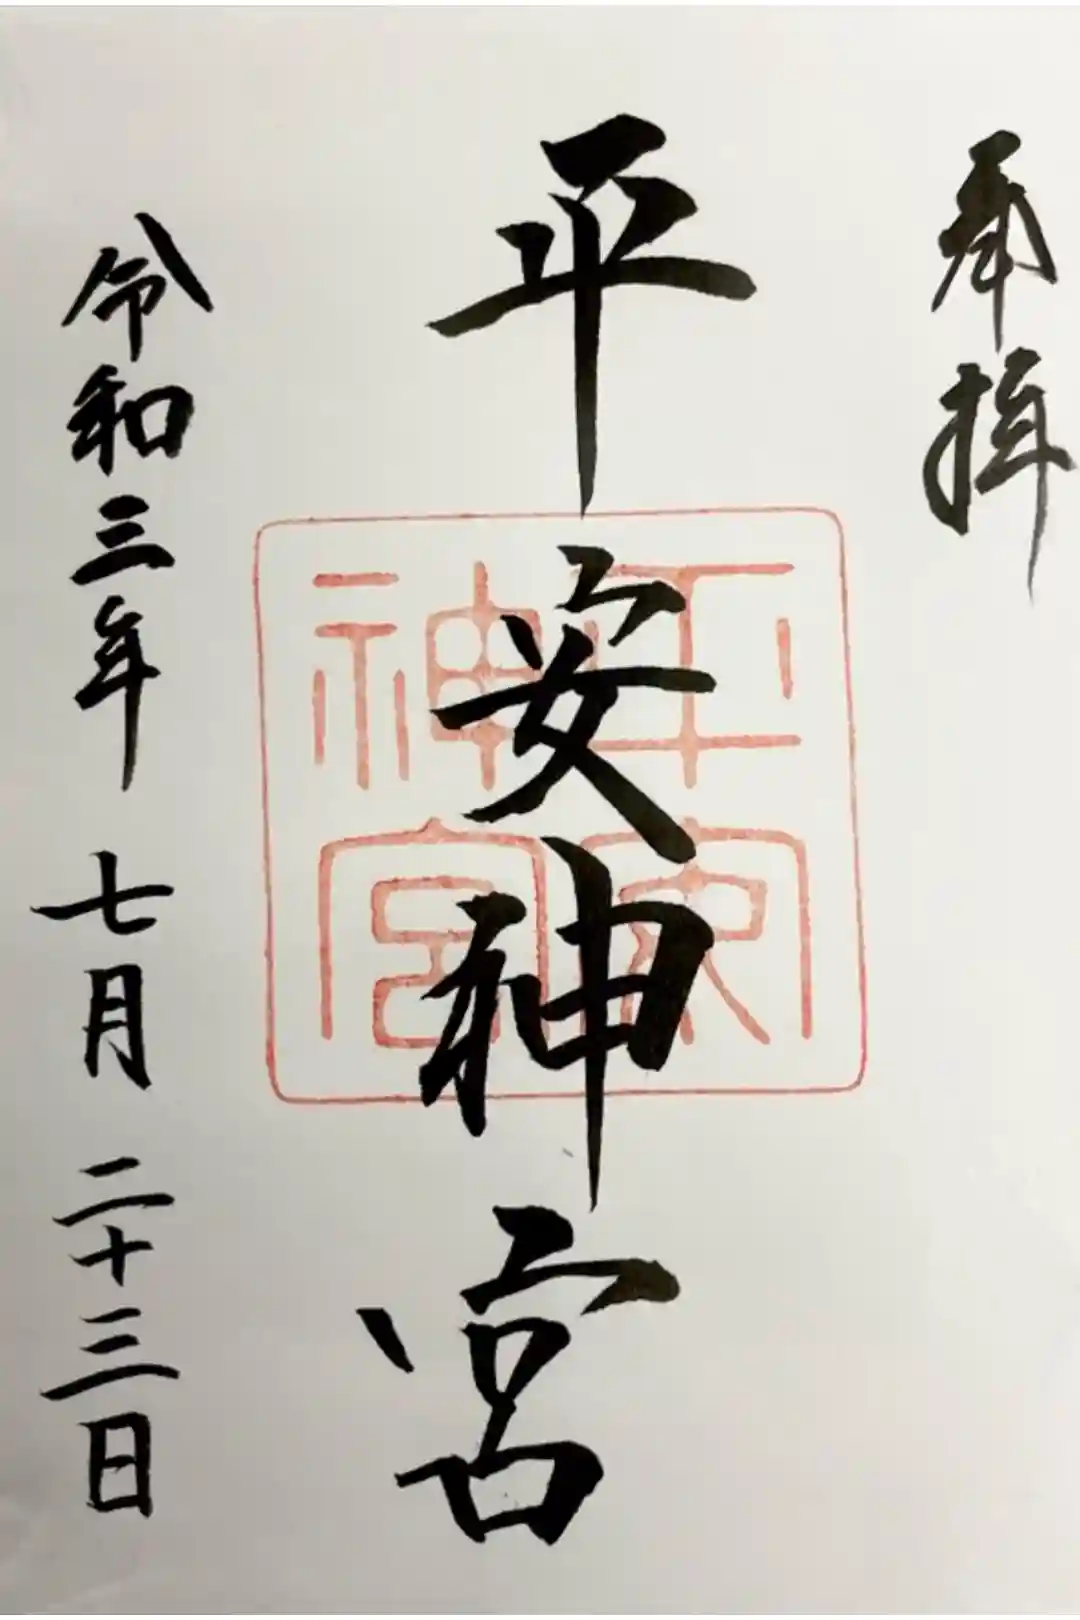 奉拝
平安神宮
平安神宮
令和三年七月二十三日